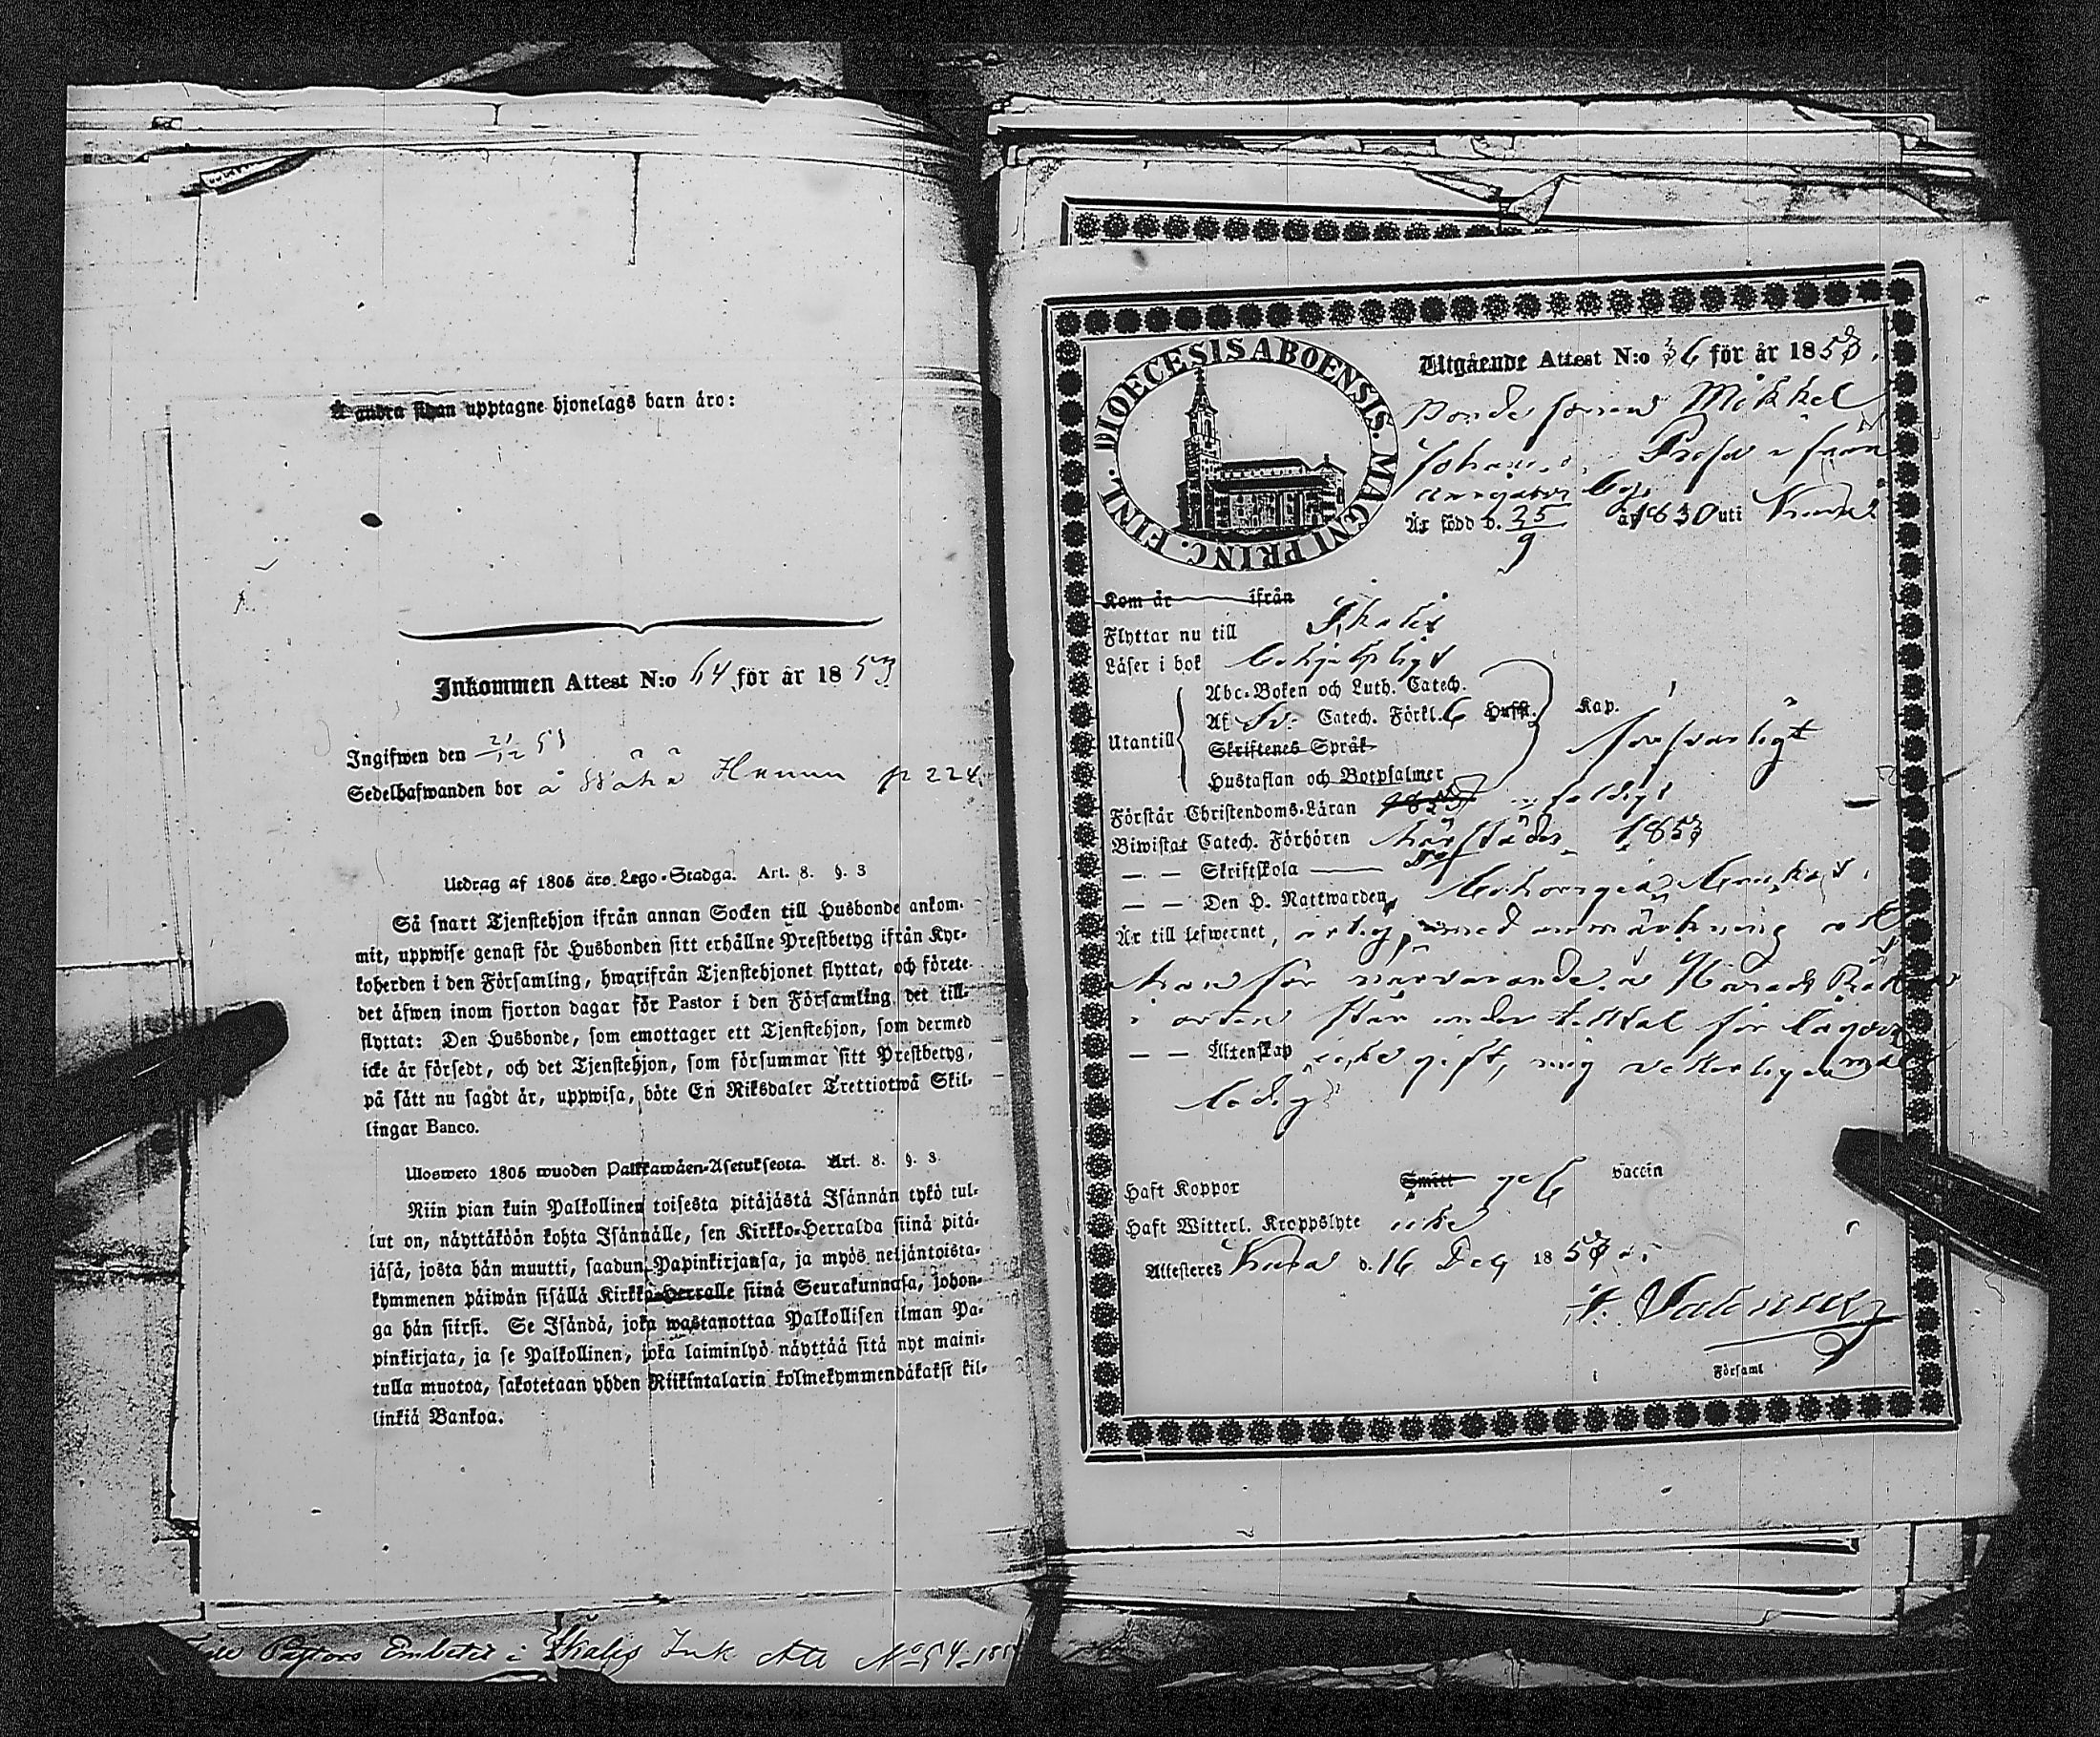 Å andra sidan upptagne hjonelags barn äro:
Inkommen Attest N:o 64 för år 1853
Ingifwen den 21/12 53
Sedelhafwanden bor å p 224.
Utdrag af 1805 års Lego-Stadga. Art. 8. §. 3
Så snart Tjenstehjon ifrån annan Socken till Husbonde ankom-
mit, uppwise genast för Husbonden sitt erhållne Prestbetyg ifrån Kyr-
koherden i den Församling, hwarifrån Tjenstehjonet flyttat, och förete
det äfwen inom fjorton dagar för Pastor i den Församling det till-
flyttat: Den Husbonde, som emottager ett Tjenstehjon, som dermed
icke är försedt, och det Tjenstehjon, som försummar sitt Prestbetyg,
på sätt nu sagdt är, uppwisa, böte En Riksdaler Trettiotwå Skil-
lingar Banco.
Ulosweto 1805 wuoden Palkkawäen-Asetuksesta. Art. 8. §. 3.
Niin pian kuin Palkollinen toisesta pitäjästä Isännän tykö tul-
lut on, näyttäköön kohta Isännälle, sen Kirkko-Herralda siinä pitä-
jäsä, josta hän muutti, saadun Papinkirjansa, ja myös neljäntoista-
kymmenen päiwän sisällä Kirkko-Herralle siinä Seurakunnasa, johon-
ga hän siirsi. Se Isändä, joka wastanottaa Palkollisen ilman Pa-
pinkirjata, ja se Palkollinen, joka laiminlyö näyttää sitä nyt maini-
tulla muotoa, sakotetaan yhden Riikintalarin kolmekymmendäkaksi kil-
linkiä Bankoa.
Pastors Embetet i Ink. Att No 54
DIOECESIS ABOENSIS. MAGNI PRINC. FINL.
Utgående Attest N:o 36 för år 1853.
Bonde sonen Mikkel
Johans. från
Är född d. 25/9 år 1830 uti
Kom år ifrån
Flyttar nu till
Läser i bok behjelpligt
Utantill
Abc-Boken och Luth. Catech.
Af Sv. Catech. Förkl. 6 Hufst. Kap.
Skriftenes Språk försvarligt
Hustaflan och Botpsalmer
Förstår Christendoms-Läran
Biwistat Catech. Förhören härstädes 1853
— — Skriftskola
— — Den H. Nattwarden,
Är till lefwernet, ärlig, med anmärkning att
han för närvarande
i orten står under tilltal för lägers
mål
— — Äktenskap icke gift, mig veterligen
ledig
Haft Koppor Smitt vaccin
Haft Witterl. Kroppslyte icke
Attesteres d. 16 Dec 1853
Församl